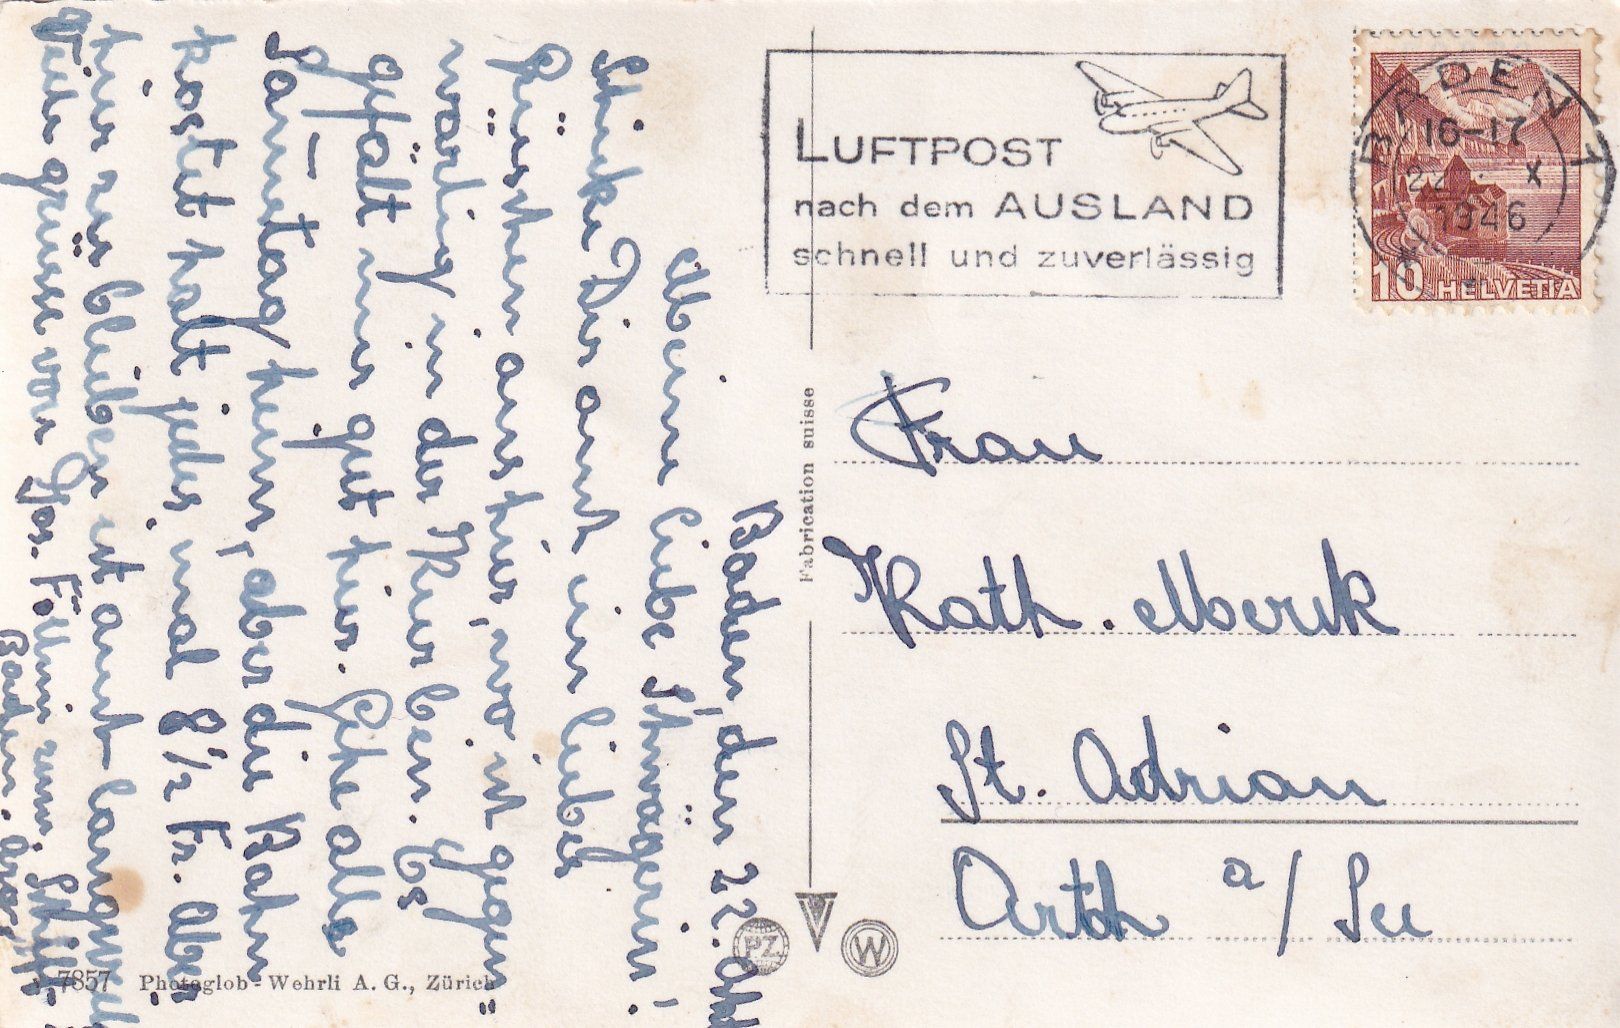 Baden, den 22. Okt
Meine liebe Schwägerin!
Schicke Dir amt ein liebes
Grüsschen aus hier, wo ist gegen¨
wärtig in der Kur bin. Es
gefält mir gut hier. Gehe alle
Samstag heim, aber die Bahn
kostet halt jedes mal 8 1/2 Fr. Aber
hier zu bleiben ist amt langweil
Viele grüsse von Jos.
Baden.
LUFTPOST
nach dem AUSLAND
schnell und zuverlässig
BADEN 1
16-17
22. X
1946
10 HELVETIA
Frau
Kath. Moerik
St. Adrian
Arth a/See
Fabrication suisse
PZ
W
7857 Photoglob-Wehrli A. G., Zürich